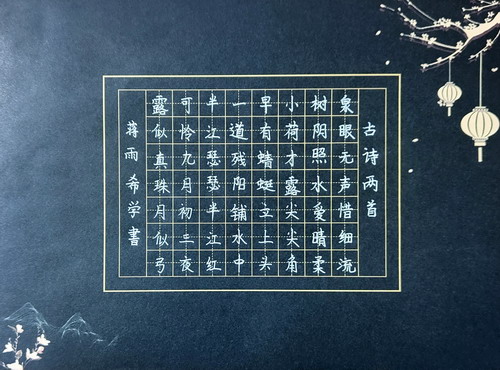 古诗两首
泉眼无声惜细流
树阴照水爱晴柔
小荷才露尖尖角
早有蜻蜓立上头
一道残阳铺水中
半江瑟瑟半江红
可怜九月初三夜
露似真珠月似弓
蒋雨希学書